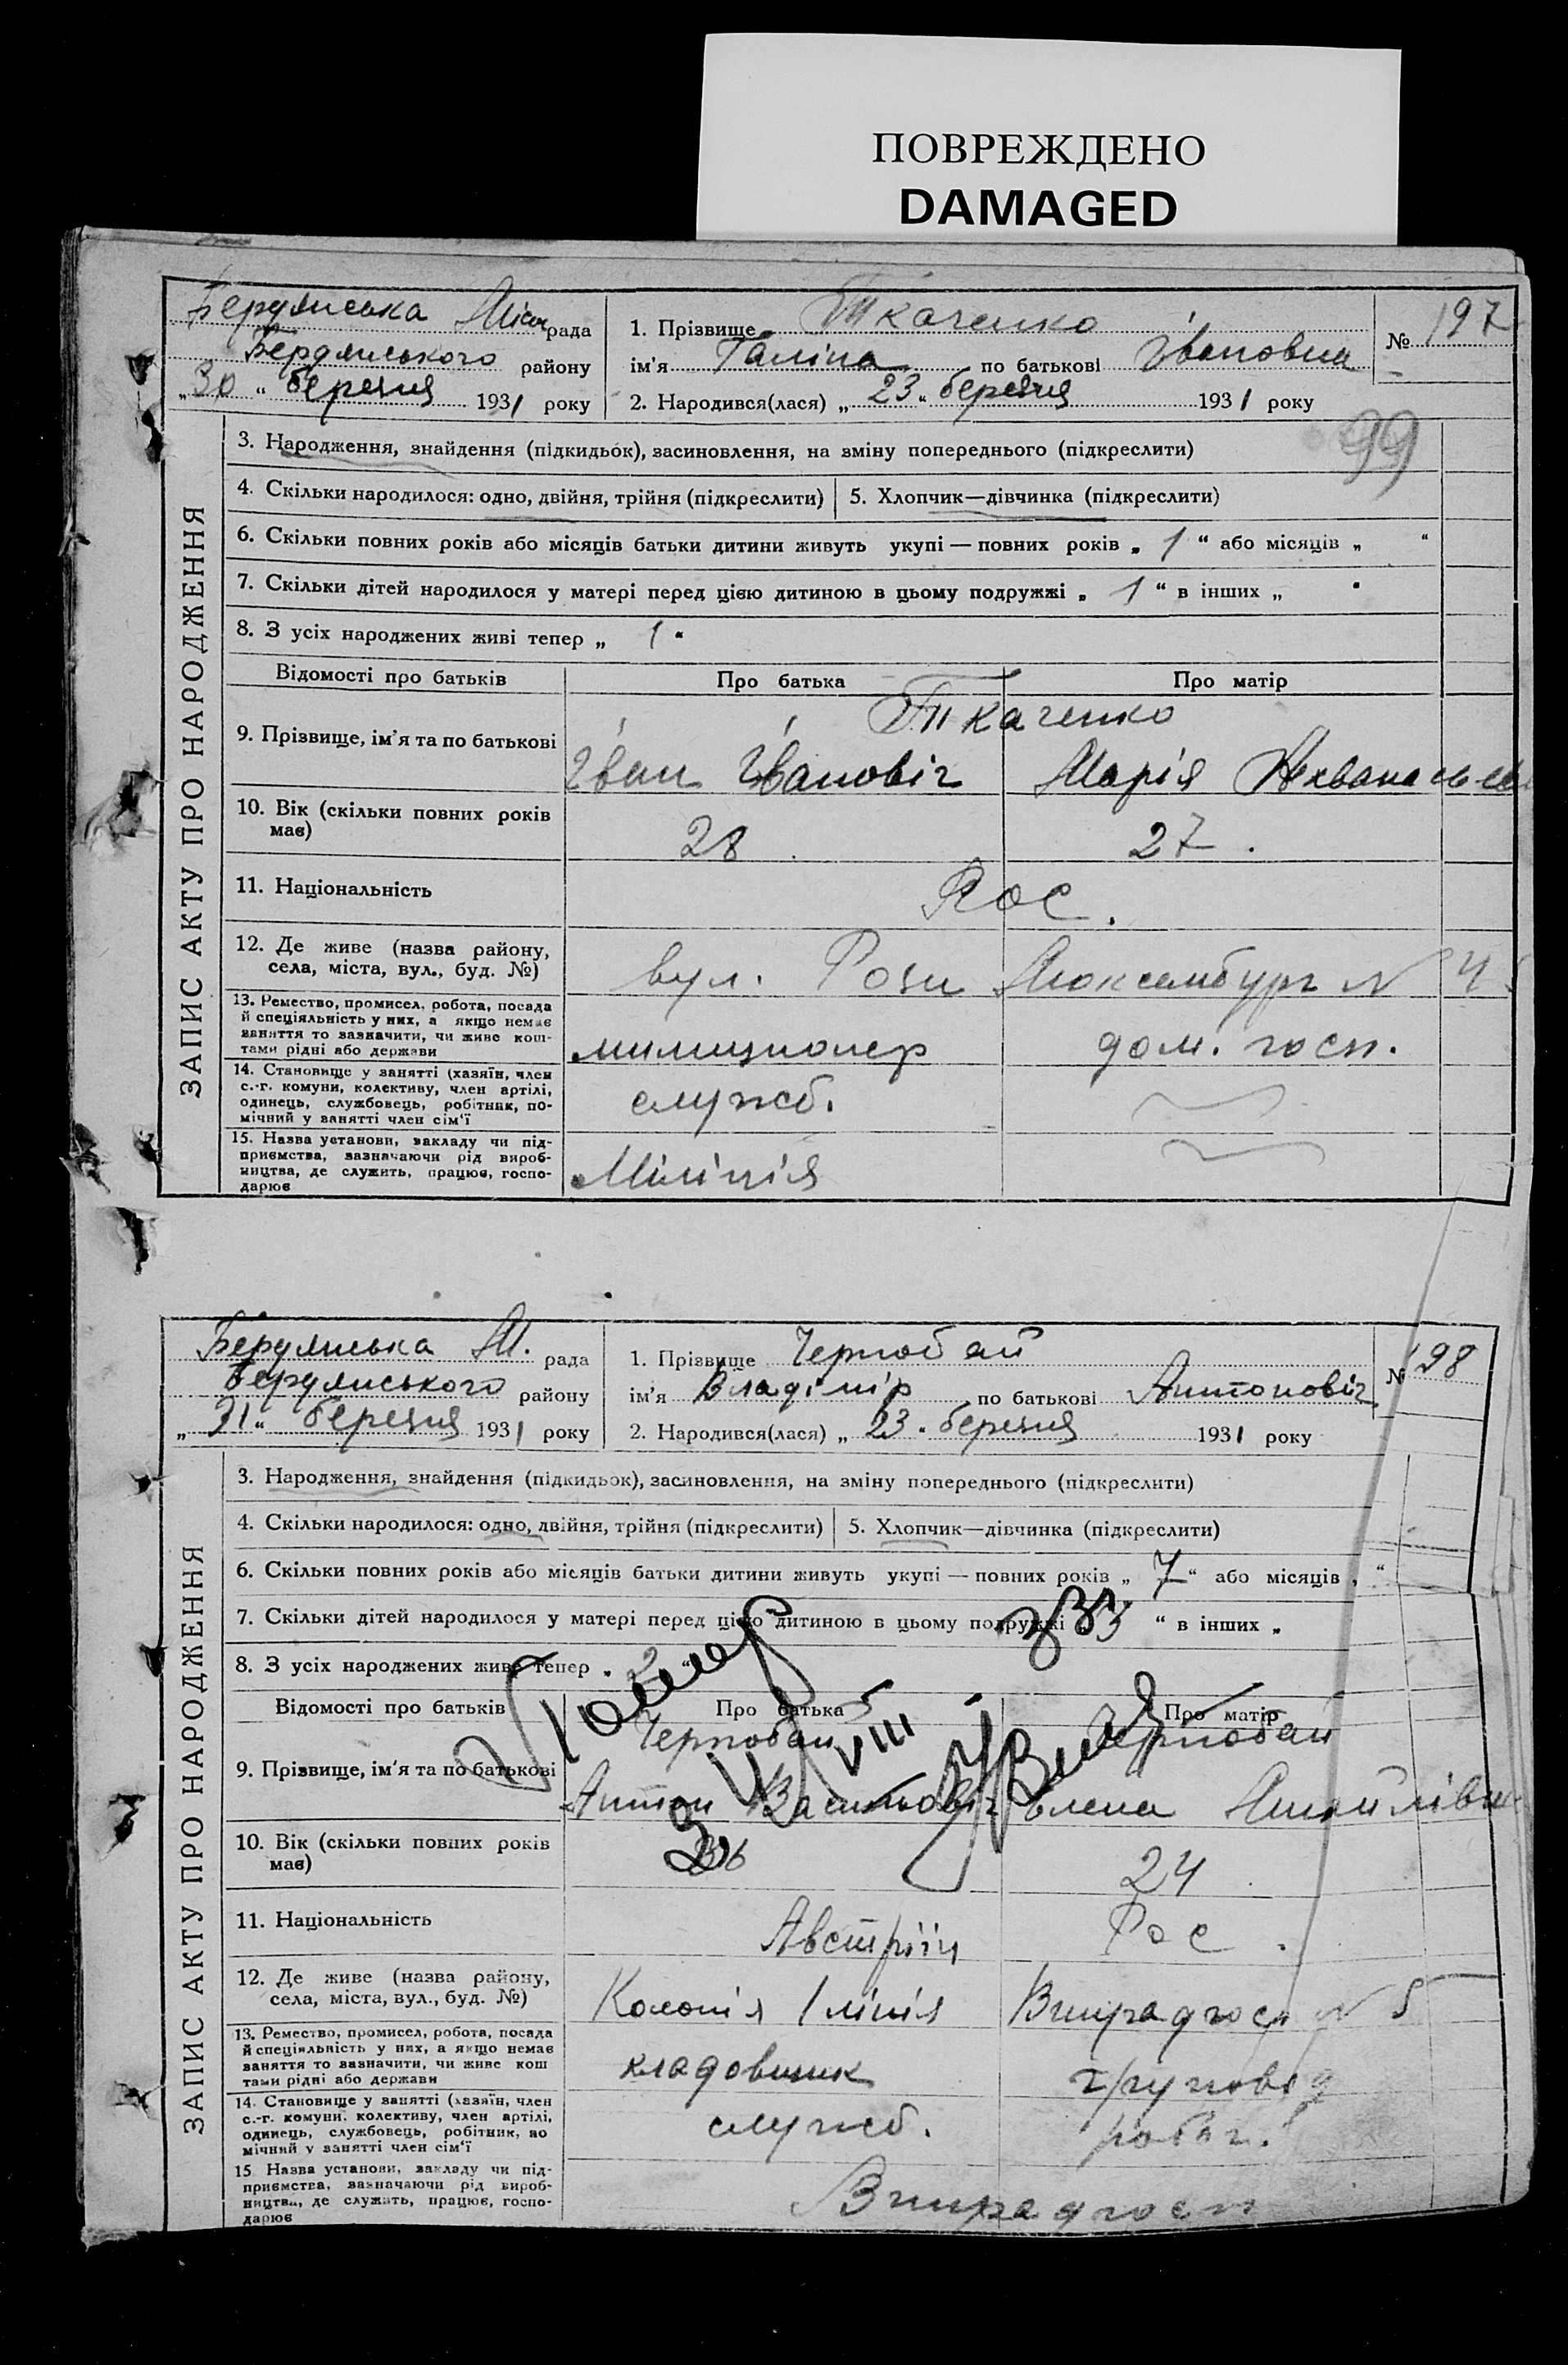 ПОВРЕЖДЕНО
DAMAGED
Бердянська Міськ рада
Бердянського району
„30“ березня 1931 року
1. Прізвище Ткаченко
ім'я Галіна по батькові Івановна
2. Народився(лася) „23“ березня 1931 року
№ 197
99
ЗАПИС АКТУ ПРО НАРОДЖЕННЯ
3. Народження, знайдення (підкидьок), засиновлення, на зміну попереднього (підкреслити)
4. Скільки народилося: одно, двійня, трійня (підкреслити) 5. Хлопчик—дівчинка (підкреслити)
6. Скільки повних років або місяців батьки дитини живуть укупі — повних років „ 1 “ або місяців „ “
7. Скільки дітей народилося у матері перед цією дитиною в цьому подружжі „ 1 “ в інших „ “
8. З усіх народжених живі тепер „ 1 “
Відомості про батьків Про батька Про матір
9. Прізвище, ім'я та по батькові
Ткаченко
Іван Івановіч Марія
10. Вік (скільки повних років має) 28 27
11. Національність Рос.
12. Де живе (назва району, села, міста, вул., буд. №)
вул. Рози Люксембург № 4
13. Ремество, промисел, робота, посада й спеціяльність у них, а якщо немає заняття то зазначити, чи живе коштами рідні або держави
милиционер дом. госп.
14. Становище у занятті (хазяїн, член с.-г. комуни, колективу, член артілі, одинець, службовець, робітник, помічний у занятті член сім'ї
служб.
15. Назва установи, закладу чи підприємства, зазначаючи рід виробництва, де служить, працює, господарює
Міліція
Бердянська М. рада
Бердянського району
„31“ березня 1931 року
1. Прізвище Чернобай
ім'я Владімір по батькові Антоновіч
2. Народився(лася) „23“ березня 1931 року
№ 198
ЗАПИС АКТУ ПРО НАРОДЖЕННЯ
3. Народження, знайдення (підкидьок), засиновлення, на зміну попереднього (підкреслити)
4. Скільки народилося: одно, двійня, трійня (підкреслити) 5. Хлопчик—дівчинка (підкреслити)
6. Скільки повних років або місяців батьки дитини живуть укупі — повних років „ 7 “ або місяців „ “
7. Скільки дітей народилося у матері перед цією дитиною в цьому подружжі 3 “ в інших „
8. З усіх народжених живі тепер „ 2 “
Помер
Відомості про батьків Про батька Про матір
9. Прізвище, ім'я та по батькові
Чернобай Чернобай
Антон Елена
10. Вік (скільки повних років має) 24
11. Національність Австріїц Рос.
12. Де живе (назва району, села, міста, вул., буд. №)
Колонія 1 лінія № 5
13. Ремество, промисел, робота, посада й спеціяльність у них, а якщо немає заняття то зазначити, чи живе коштами рідні або держави
кладовщик
14. Становище у занятті (хазяїн, член с.-г. комуни, колективу, член артілі, одинець, службовець, робітник, помічний у занятті член сім'ї
служб. робіт.
15 Назва установи, закладу чи підприємства, зазначаючи рід виробництва, де служить, працює, господарює